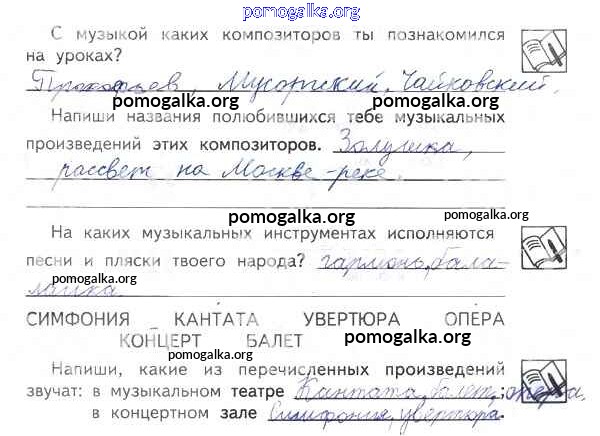 pomogalka.org
С музыкой каких композиторов ты познакомился
на уроках?
Прокофьев Мусоргский, Чайковский.
pomogalka.org pomogalka.org
Напиши названия полюбившихся тебе музыкальных
произведений этих композиторов. Золушка,
рассвет на Москве-реке.
pomogalka.org
pomogalka.org pomogalka.org
На каких музыкальных инструментах исполняются
песни и пляски твоего народа? гармонь, бала-
pomogalka.org
лайка.
СИМФОНИЯ КАНТАТА УВЕРТЮРА ОПЕРА
КОНЦЕРТ БАЛЕТ pomogalka.org
pomogalka.org
Напиши, какие из перечисленных произведений
звучат: в музыкальном театре Кантата, балет, ;опера,
в концертном зале Симфония, увертюра.
pomogalka.org pomogalka.org